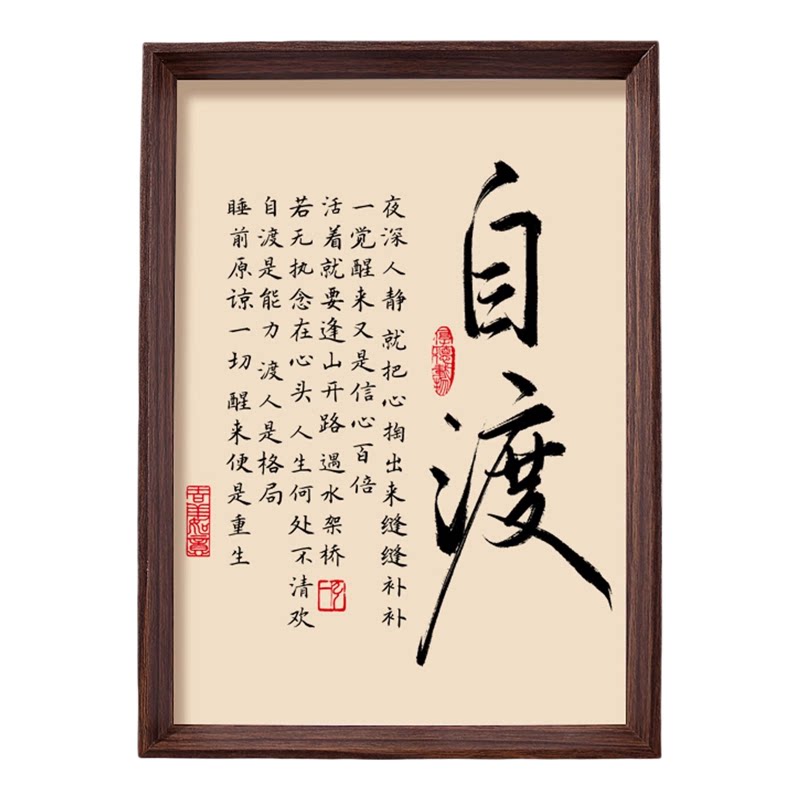 自渡
厚德载物
夜深人静 就把心掏出来缝缝补补
一觉醒来又是信心百倍
活着就要逢山开路 遇水架桥
若无执念在心头 人生何处不清欢
自渡是能力 渡人是格局
睡前原谅一切 醒来便是重生